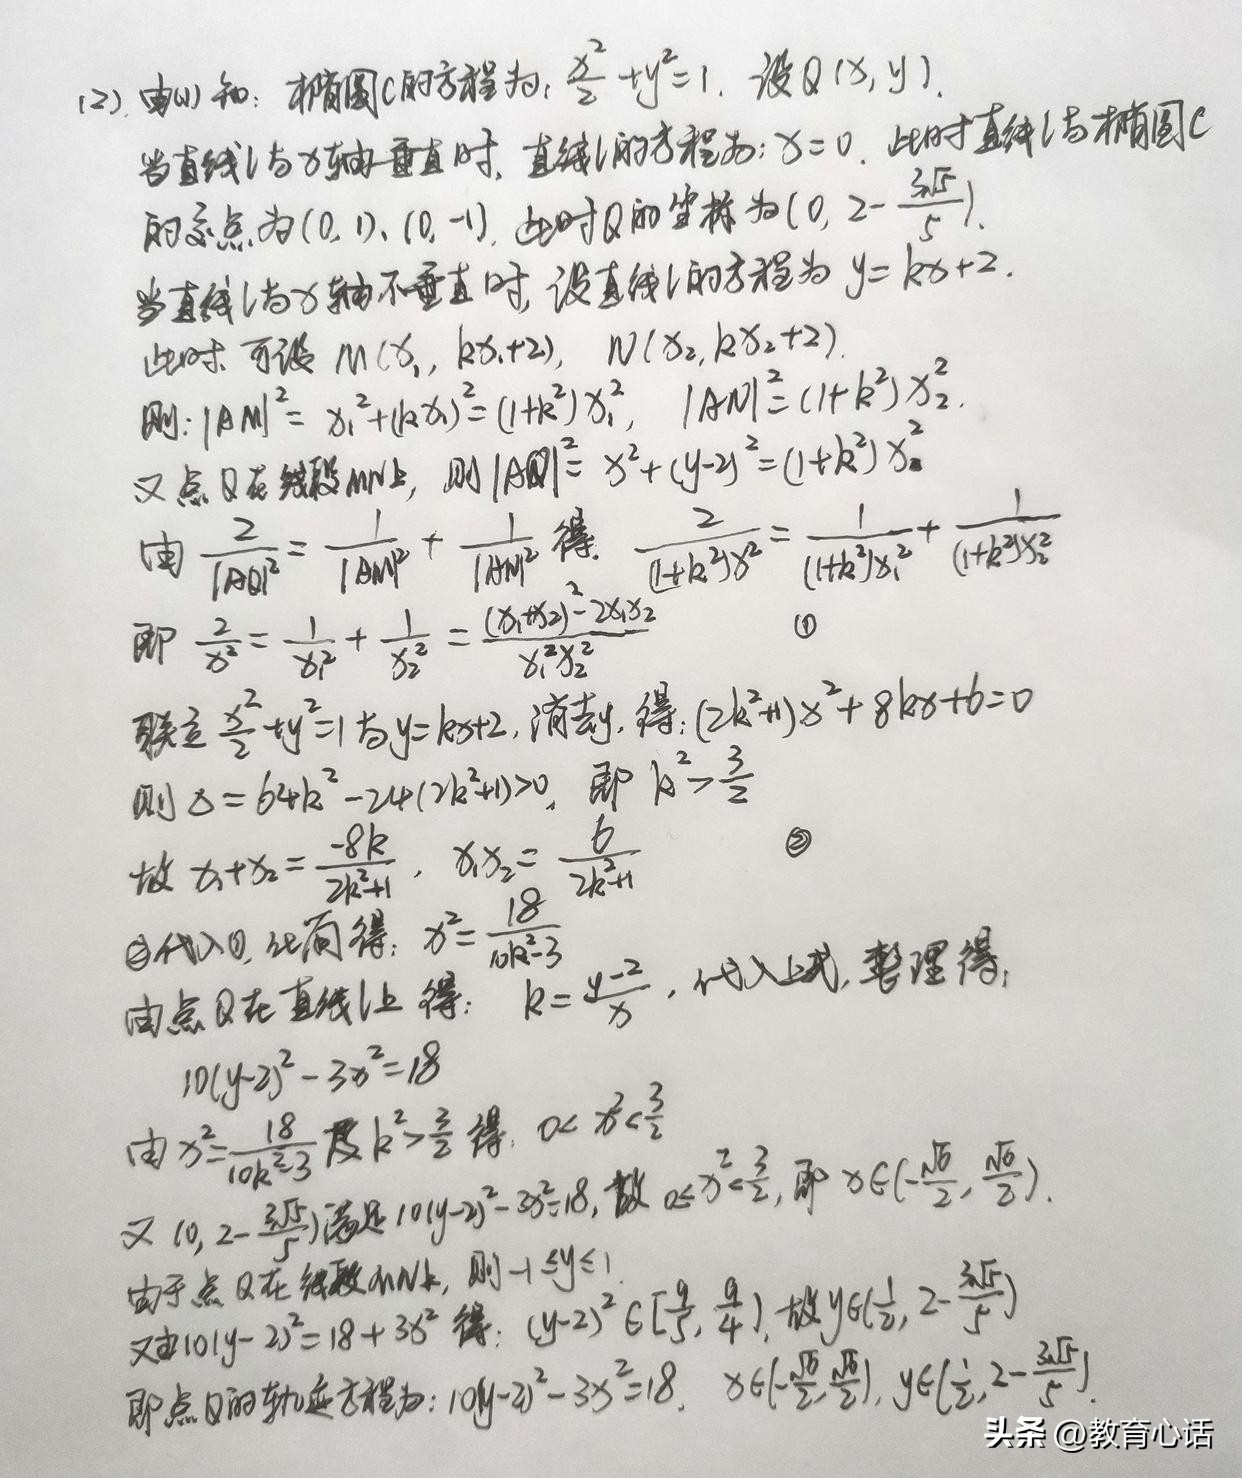 (2). 由(1)知: 椭圆C的方程为: x²/2 + y² = 1. 设Q(x, y).
当直线l与x轴垂直时, 直线l的方程为: x=0. 此时直线l与椭圆C
的交点为(0, 1), (0, -1). 此时Q的坐标为(0, 2-3√5/5).
当直线l与x轴不垂直时, 设直线l的方程为 y=kx+2.
此时可设 M(x₁, kx₁+2), N(x₂, kx₂+2).
则: |AM|² = x₁²+(kx₁)² = (1+k²)x₁², |AN|² = (1+k²)x₂².
又点Q在线段MN上, 则|AQ|² = x²+(y-2)² = (1+k²)x²
由 2/|AQ|² = 1/|AM|² + 1/|AN|² 得. 2/((1+k²)x²) = 1/((1+k²)x₁²) + 1/((1+k²)x₂²)
即 2/x² = 1/x₁² + 1/x₂² = ((x₁+x₂)²-2x₁x₂)/(x₁²x₂²) ①
联立 x²/2+y²=1与y=kx+2, 消去y, 得: (2k²+1)x²+8kx+6=0
则 Δ=64k²-24(2k²+1)>0, 即 k²>3/2
故 x₁+x₂ = -8k/(2k²+1), x₁x₂ = 6/(2k²+1) ②
②代入①, 化简得: x² = 18/(10k²-3)
由点Q在直线l上得: k = (y-2)/x, 代入上式, 整理得:
10(y-2)²-3x²=18
由 x²=18/(10k²-3) 及 k²>3/2 得: 0<x²<3/2
又 (0, 2-3√5/5)满足10(y-2)²-3x²=18, 故 0≤x²<3/2, 即 x∈(-√6/2, √6/2).
由于点Q在线段MN上, 则-1≤y≤1.
又由10(y-2)²=18+3x² 得: (y-2)²∈[9/5, 9/4), 故y∈(1/2, 2-3√5/5]
即点Q的轨迹方程为: 10(y-2)²-3x²=18, x∈(-√6/2, √6/2), y∈(1/2, 2-3√5/5].
头条 @教育心话